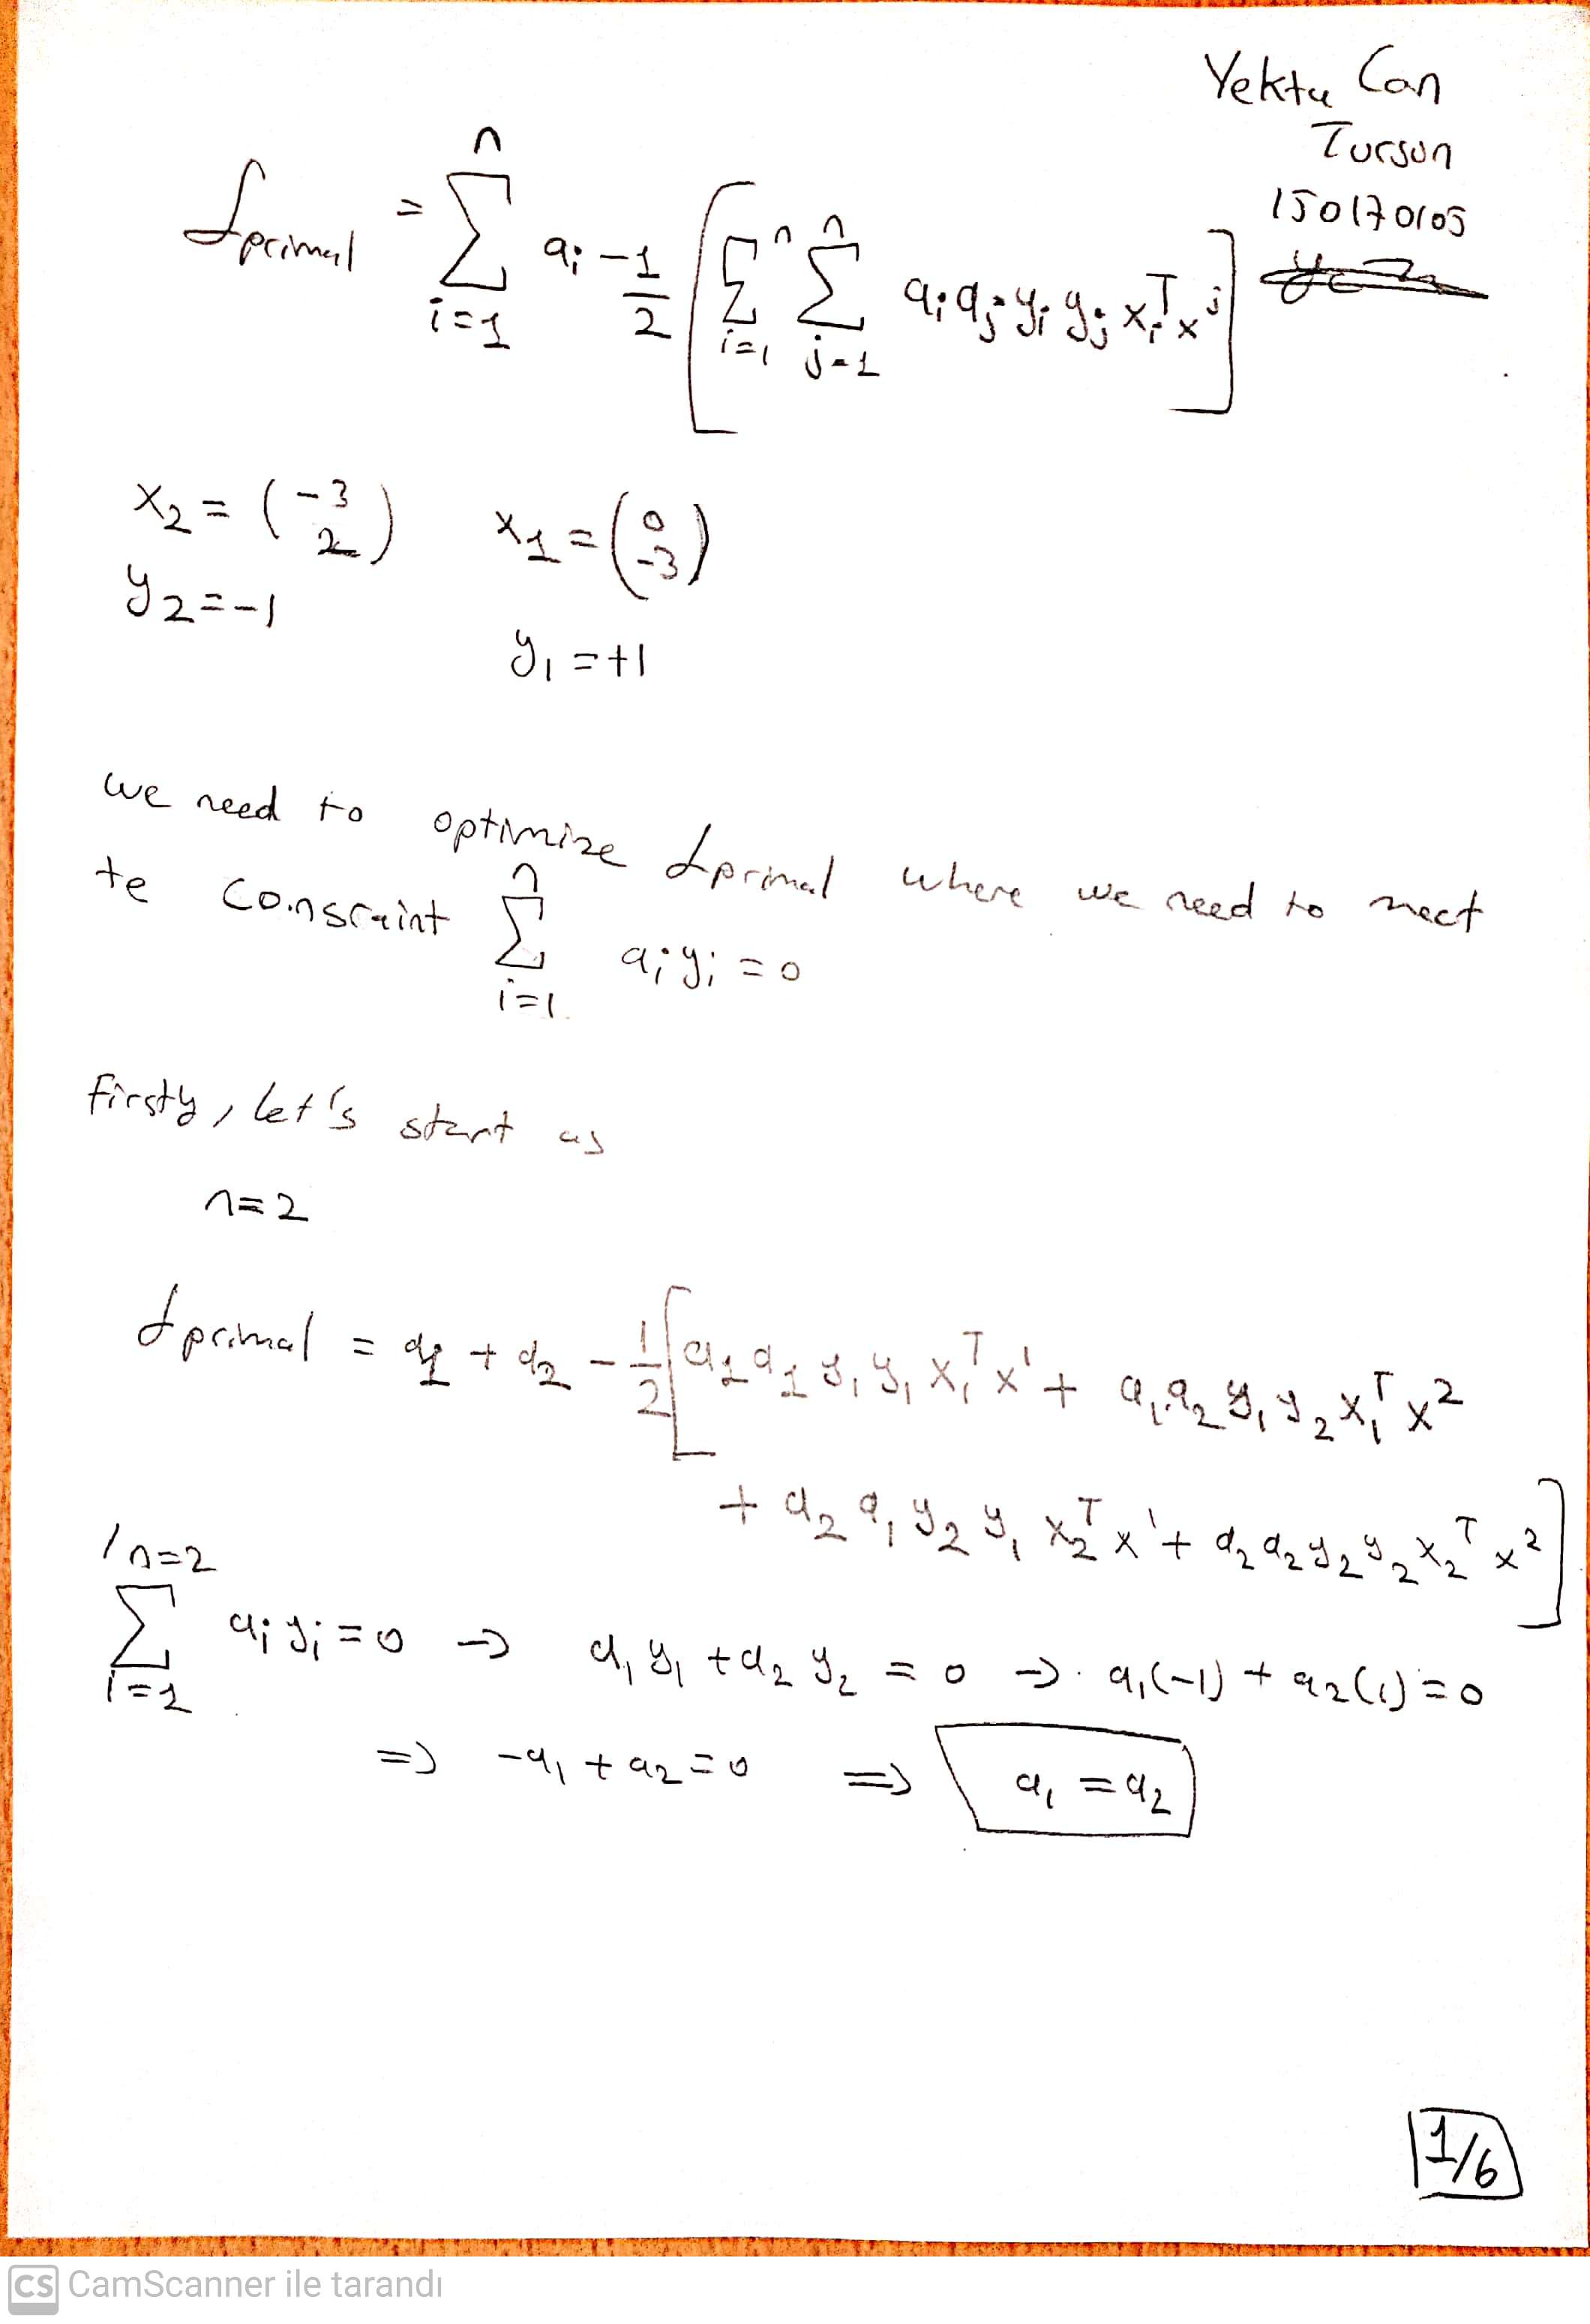 Yekta Can
Tursun
150170105
Lprimal = n Σ i=1 a_i - 1/2 [ n Σ i=1 n Σ j=1 a_i a_j y_i y_j x_i^T x^j ]
x_2 = (-3 2) x_1 = (0 -3)
y_2 = -1
y_1 = +1
we need to optimize Lprimal where we need to meet
te consraint n Σ i=1 a_i y_i = 0
firsty, let's start as
n=2
Lprimal = a_1 + a_2 - 1/2 [ a_1 a_1 y_1 y_1 x_1^T x^1 + a_1 a_2 y_1 y_2 x_1^T x^2
+ a_2 a_1 y_2 y_1 x_2^T x^1 + a_2 a_2 y_2 y_2 x_2^T x^2 ]
n=2 Σ i=1 a_i y_i = 0 → a_1 y_1 + a_2 y_2 = 0 → a_1(-1) + a_2(1) = 0
⇒ -a_1 + a_2 = 0 ⇒ a_1 = a_2
1/6
CS CamScanner ile tarandı